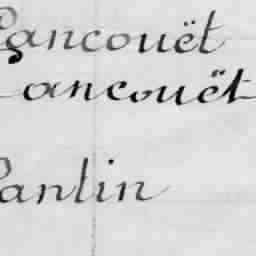 Pancouët
ancouët
Pantin